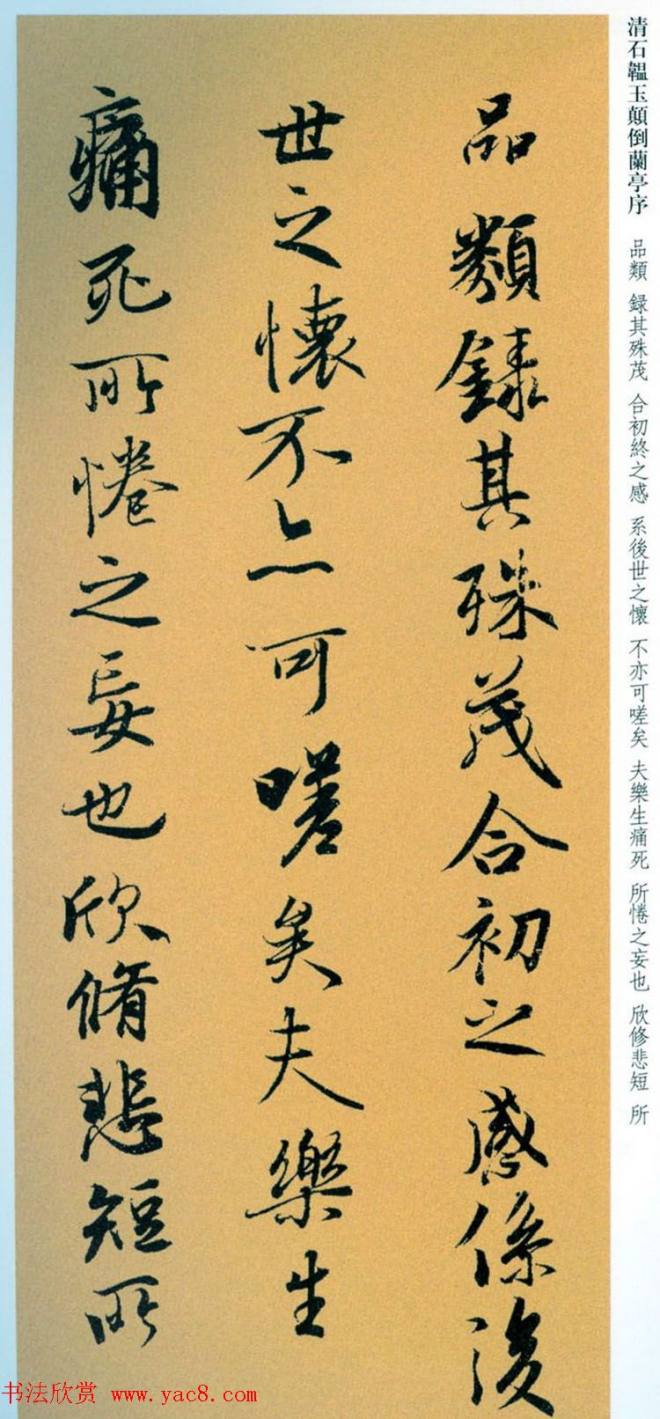 清石韞玉顛倒蘭亭序 品類 録其殊茂 合初終之感 系後世之懷 不亦可嗟矣 夫樂生痛死 所惓之妄也 欣修悲短 所
品類錄其殊茂合初之感係後
世之懷不亦可嗟矣夫樂生
痛死所惓之妄也欣脩悲短所
书法欣赏 www.yac8.com